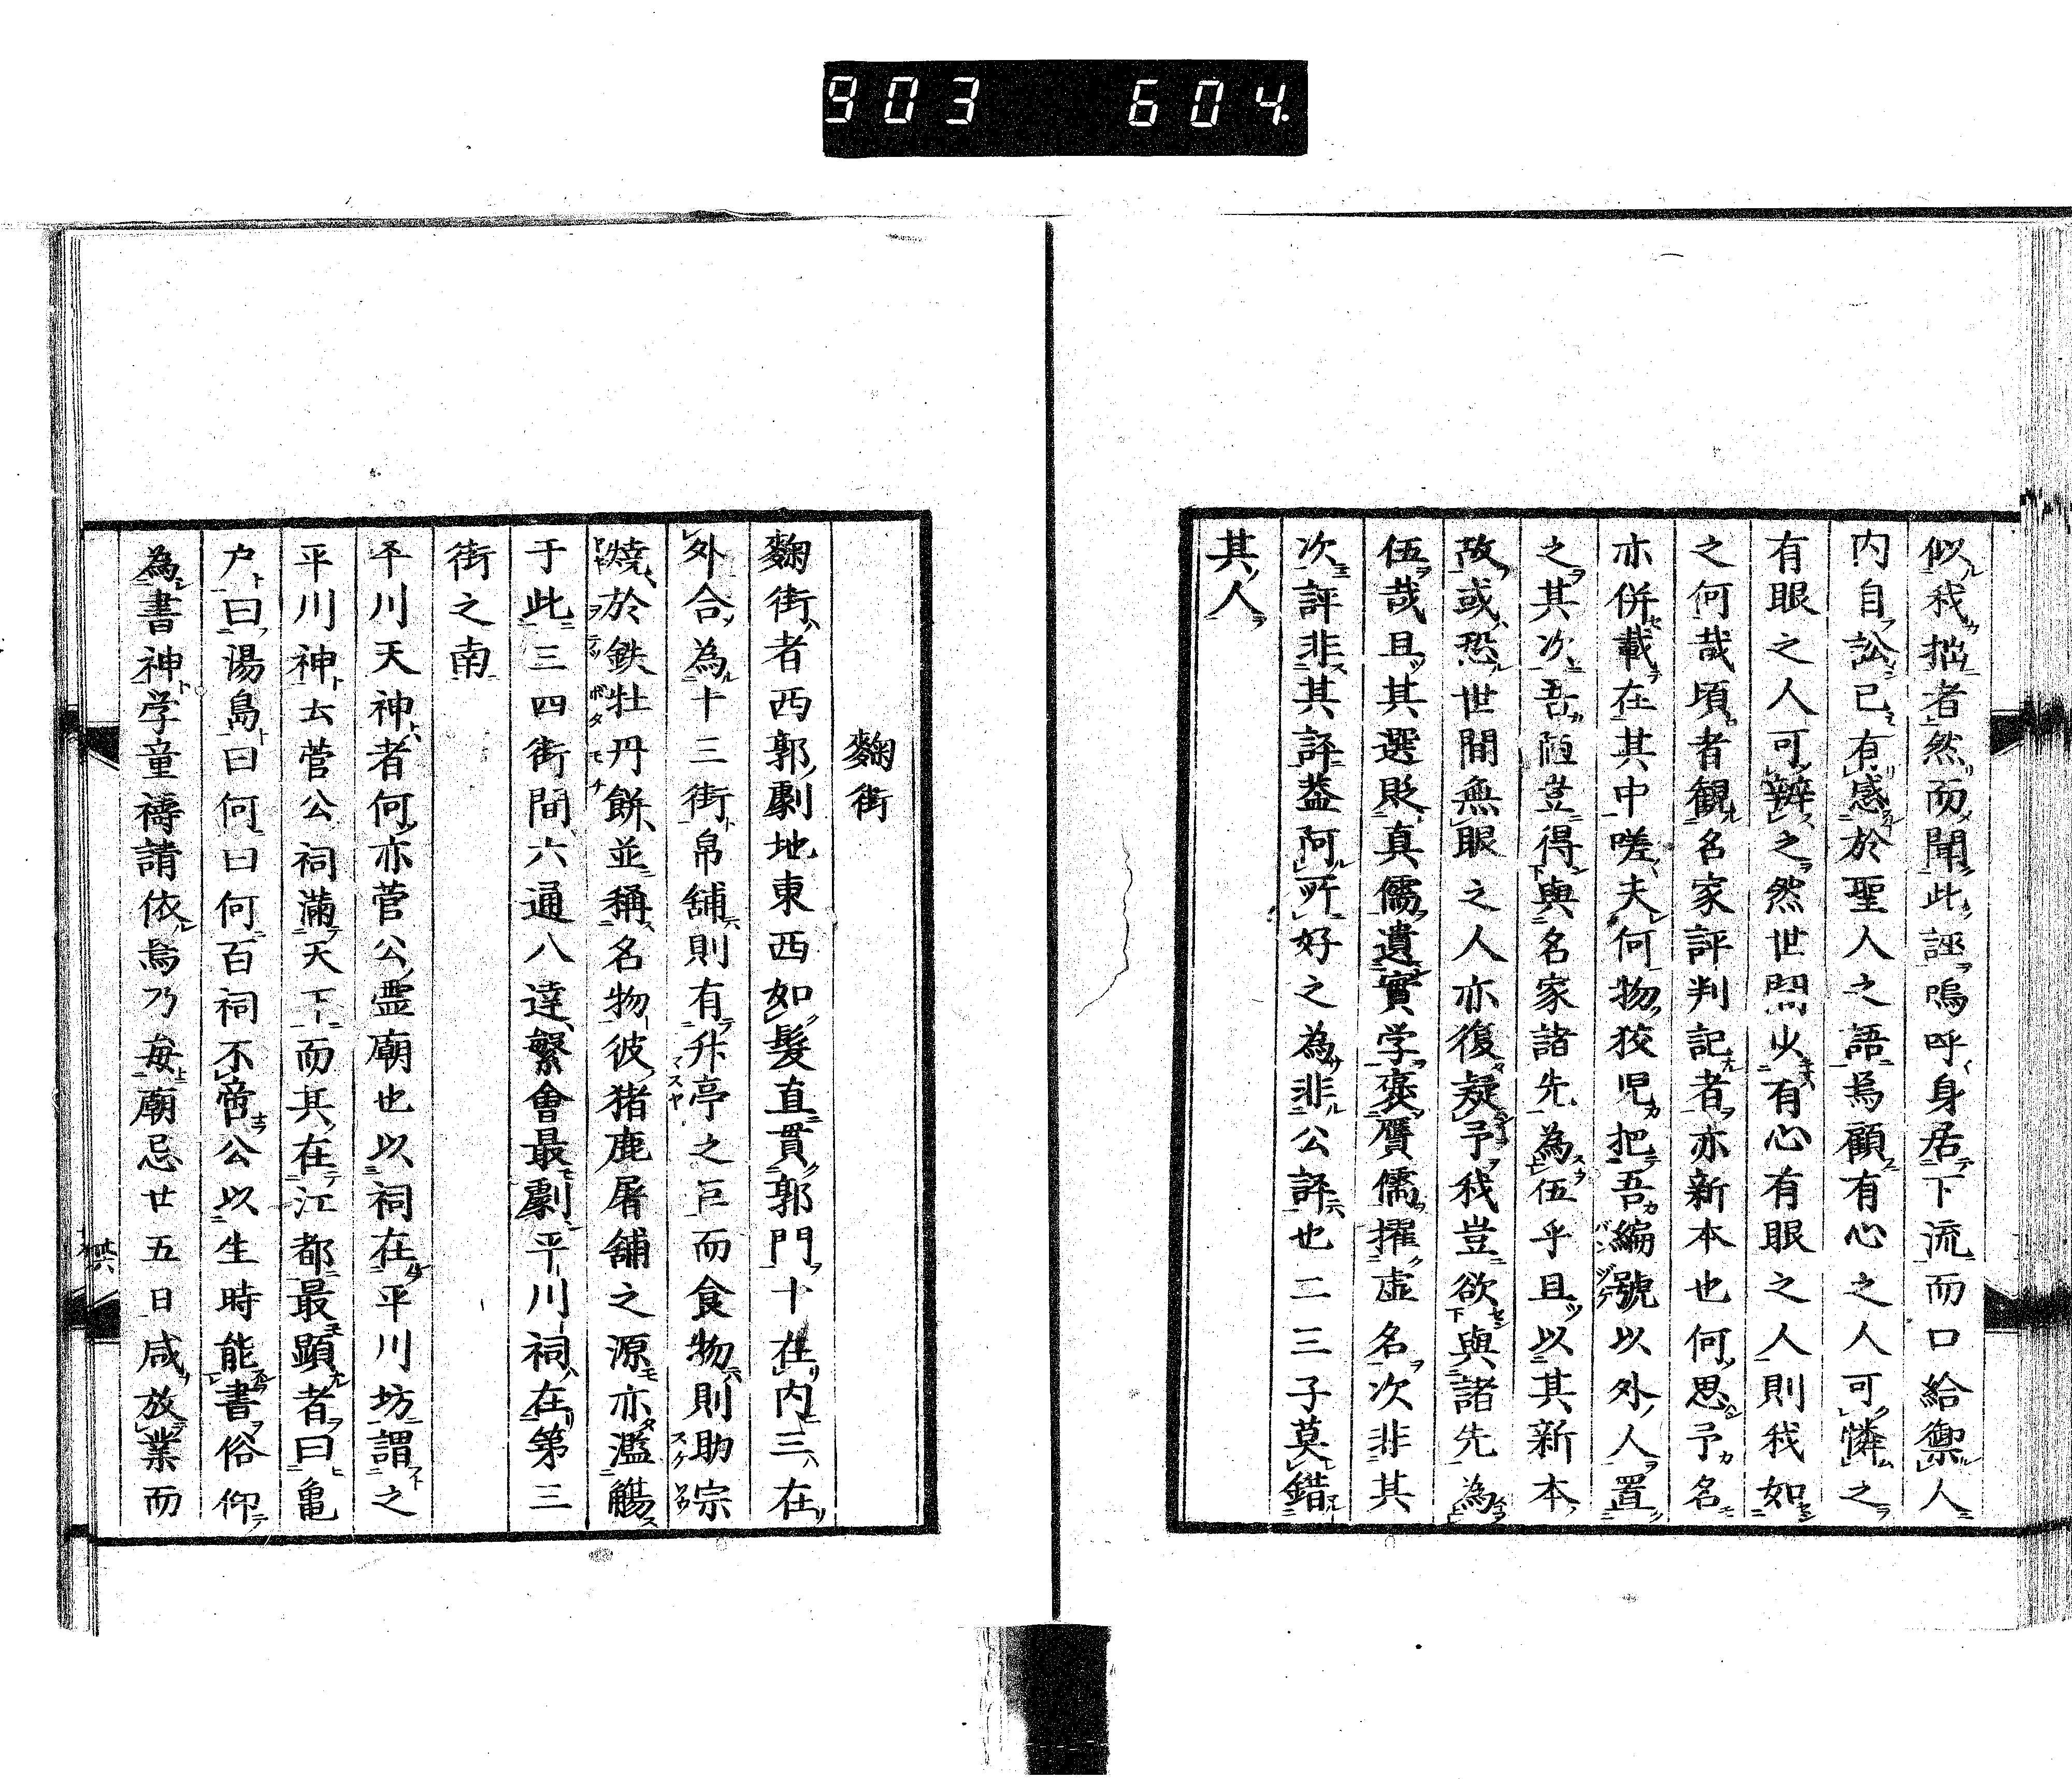 903 604
似我拙者然而聞此誣嗚呼身居下流而口給禦人
内自訟已有感於聖人之語焉顧有心之人可憐之
有眼之人可辨之然世間少有心有眼之人則我如
之何哉頃者観名家評判記者亦新本也何思予名
亦併載在其中嗟夫何物狡児把吾編號以外人置
之其次吾陋豈得與名家諸先為伍乎且以其新本
故或恐世間無眼之人亦復疑予我豈欲與諸先為
伍哉且其選貶真儒遺實学褒贋儒擢虚名次非其
次評非其評蓋阿所好之為非公評也二三子莫錯
其人
麴街
麴街者西郭劇地東西如髮直貫郭門十在内三在
外合為十三街帛舗則有升亭之巨而食物則助宗
燒於鉄牡丹餅並稱名物彼猪鹿屠舗之源亦濫觴
于此三四街間六通八達繁會最劇平川祠在第三
街之南
平川天神者何亦菅公霊廟也以祠在平川坊謂之
平川神云菅公祠滿天下而其在江都最顕者曰亀
戸曰湯島曰何曰何百祠不啻公以生時能書俗仰
為書神学童禱請依焉乃毎廟忌廿五日咸放業而